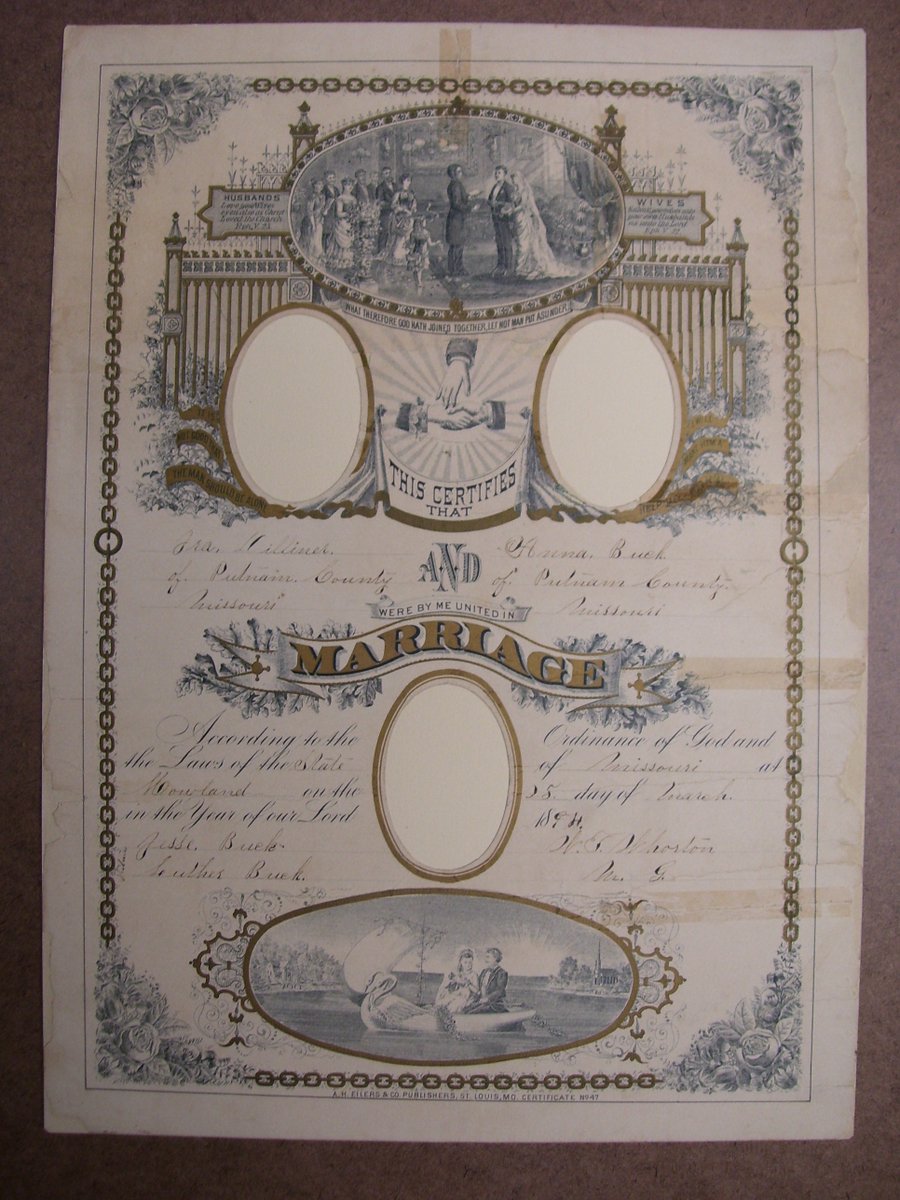 HUSBANDS
Love your Wives
even also as Christ
Loved the Church
Eph. V. 25
WIVES
your own Husbands
as unto the Lord
Eph. V. 22
WHAT THEREFORE GOD HATH JOINED TOGETHER, LET NOT MAN PUT ASUNDER.
IT IS
NOT GOOD THAT
THE MAN SHOULD BE ALONE
THIS CERTIFIES
THAT
Ira. Anna. Buck
AND
of Putnam. County of Putnam County.
Missouri Missouri
WERE BY ME UNITED IN
MARRIAGE
According to the Ordinance of God and
the Laws of the State of Missouri at
on the day of March.
in the Year of our Lord 189
Jesse. Buck
Luther Buck. M. G.
A. H. EILERS & CO. PUBLISHERS, ST. LOUIS, MO. CERTIFICATE No 47